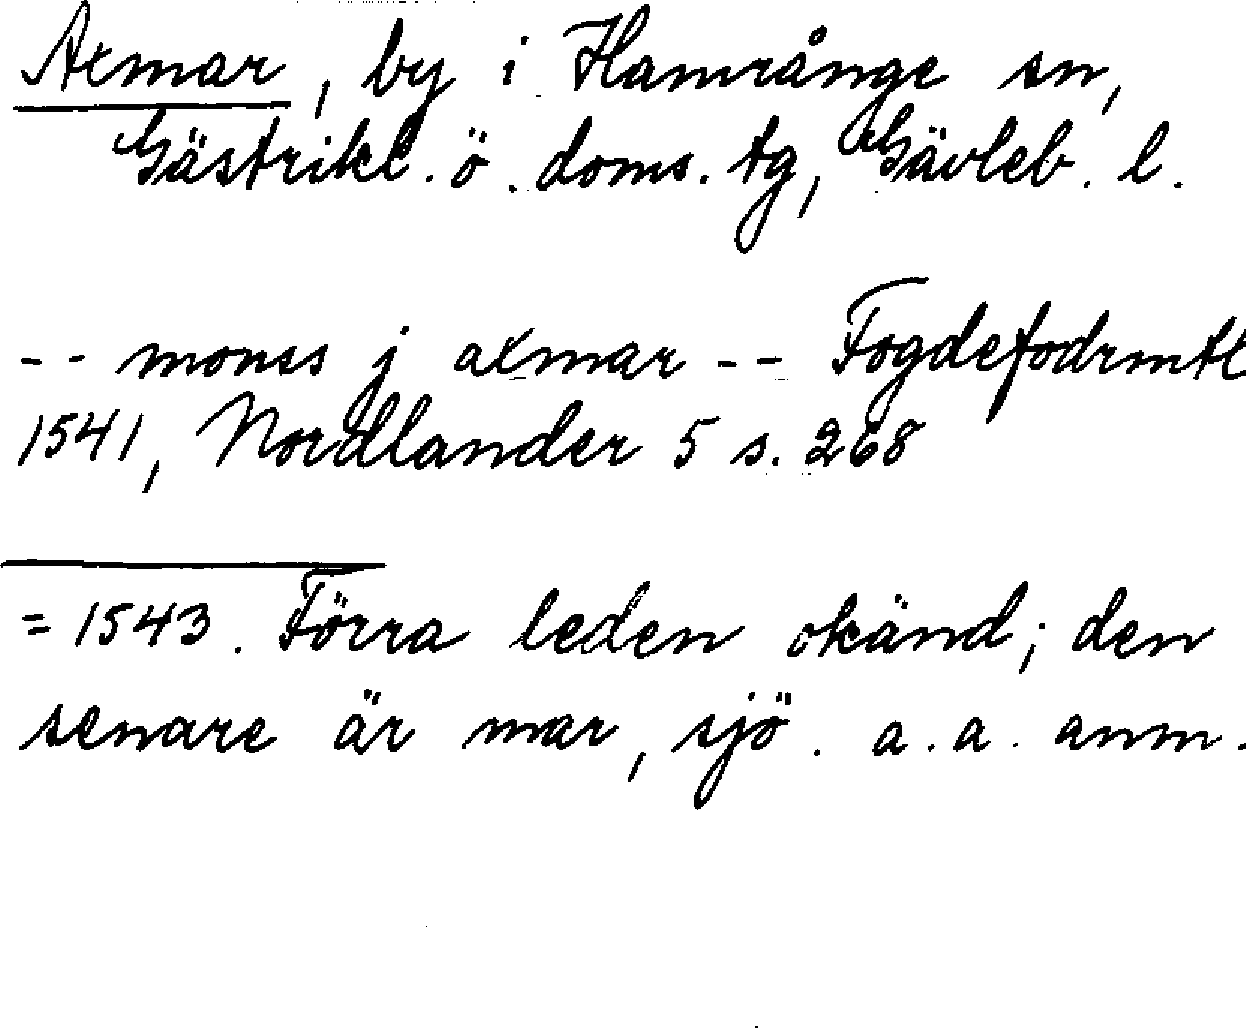 Axmar, by i Hamrånge sn,
Gästrikl. ö. doms. tg, Gävleb. l.
-- monss j axmar -- Fogdefodrmtl
1541, Nordlander 5 s. 268
= 1543. Förra leden okänd; den
senare är mar, sjö. a. a. anm.